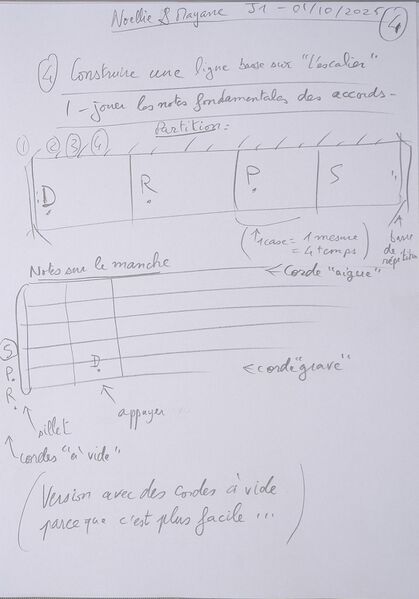 Noellie & Mayane J1 - 01/10/2025
4
4 Construire une ligne basse sur "l'escalier"
1 - jouer les notes fondamentales des accords -
Partition :
1 2 3 4
D R P S
1 case = 1 mesure
= 4 temps
barre
de
répétition
Notes sur le manche
Corde "aigue"
S
P
R
D
corde "grave"
sillet
appuyer
cordes "à vide"
Version avec des cordes à vide
parce que c'est plus facile ...